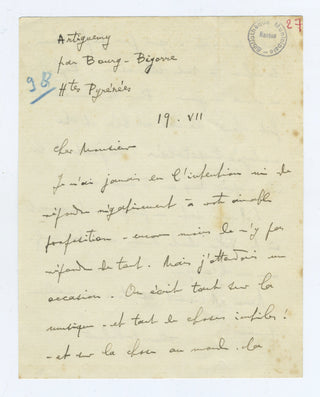 27
BIBLIOTHÈQUE MUNICIPALE
Artiguemy
par Bourg-Bigorre
98
Htes Pyrénées
19. VII
Cher Monsieur
Je n'ai jamais eu l'intention ni de
répondre négativement à votre aimable
proposition - encore moins de n'y pas
répondre du tout. Mais j'attendais une
occasion. On écrit tant sur la
musique - et tant de choses inutiles!
- et sur la chose au monde la